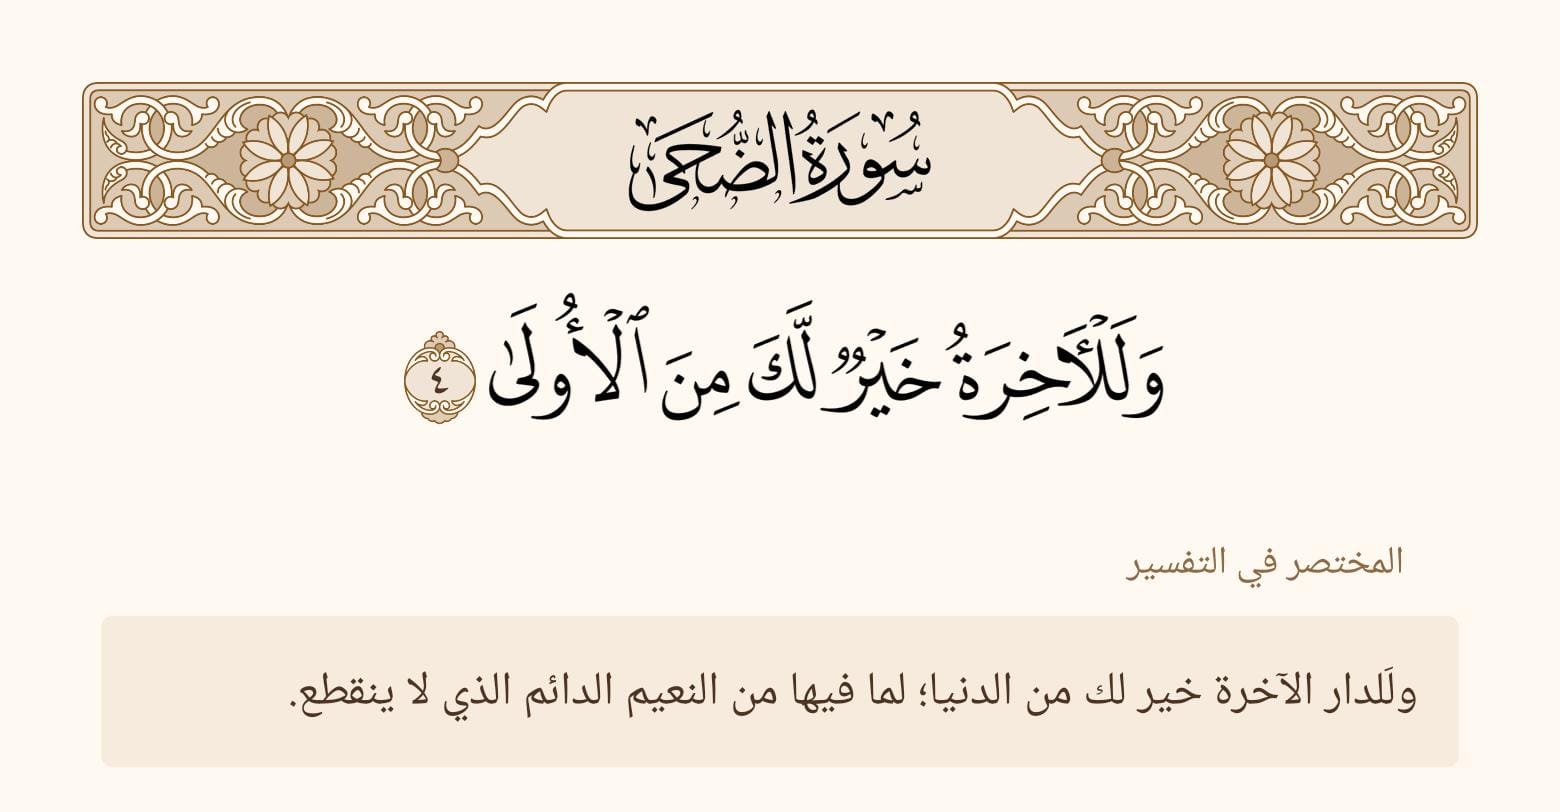 سُورَةُ الضُّحَى
وَلَلۡأٓخِرَةُ خَيۡرٞ لَّكَ مِنَ ٱلۡأُولَىٰ ٤
المختصر في التفسير
ولَلدار الآخرة خير لك من الدنيا؛ لما فيها من النعيم الدائم الذي لا ينقطع.